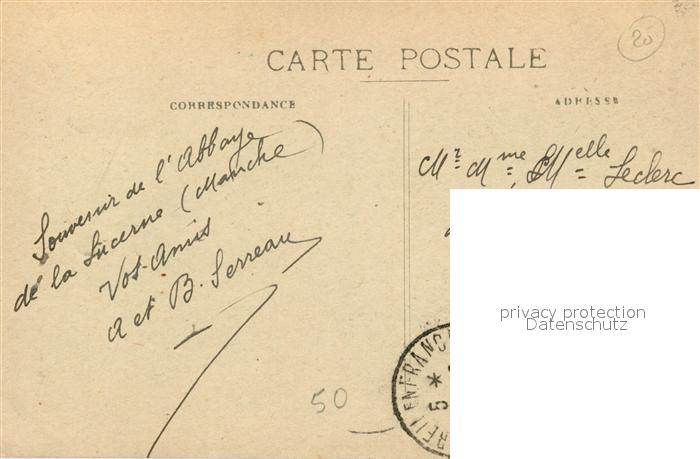 20
CARTE POSTALE
CORRESPONDANCE
ADRESSE
Souvenir de l'Abbaye
de la Lucerne (Manche)
Vos Amis
A et B. Serreau
Mr Mme & Melle Leclerc
privacy protection
Datenschutz
EN FRANC
* 5
50